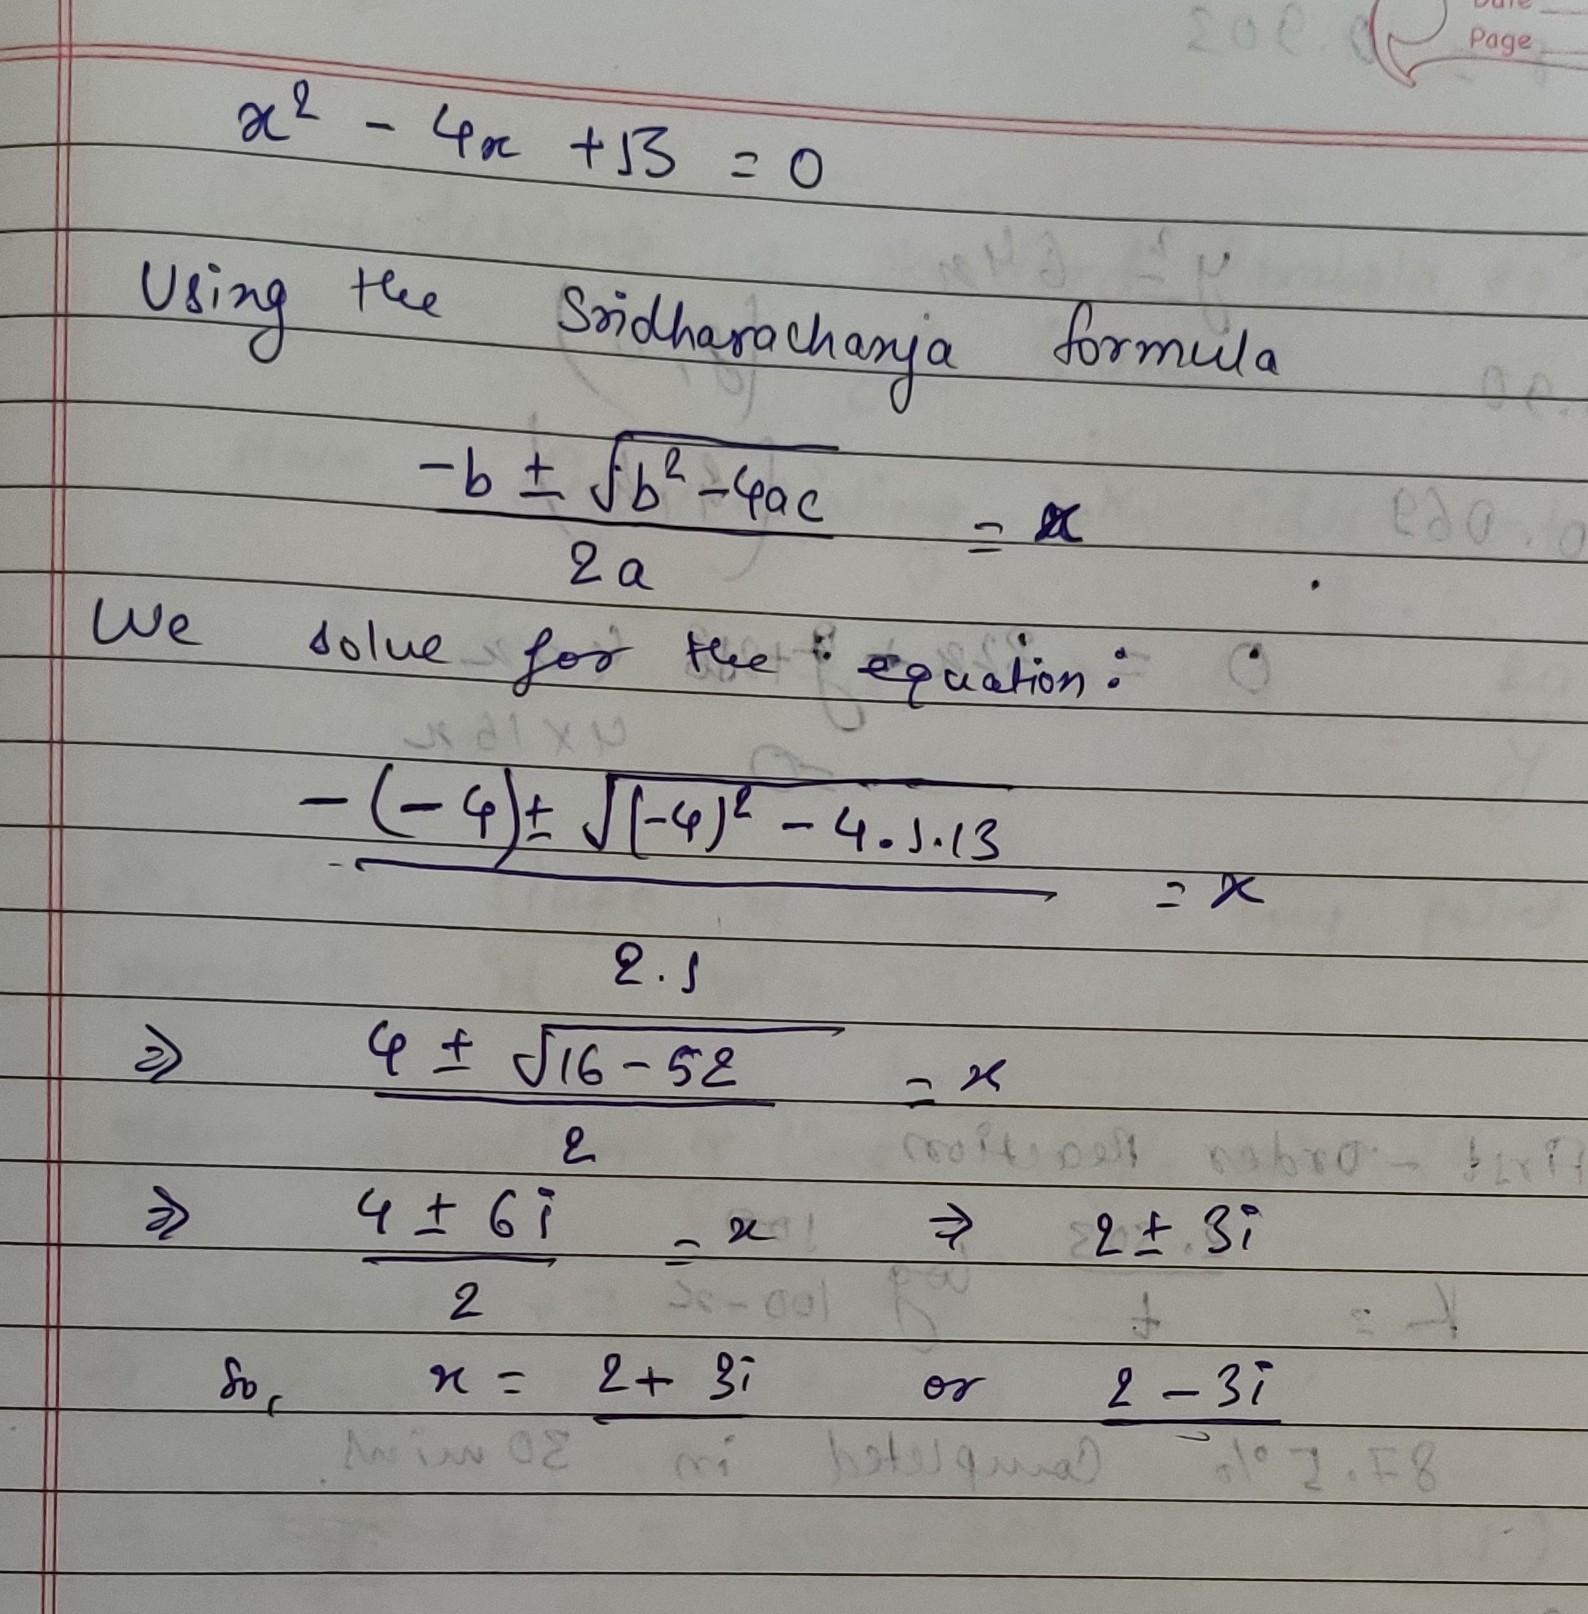 Page
x² - 4x + 13 = 0
Using the Sridharacharya formula
-b ± √b² - 4ac = x
2a
We solve for the : equation :
-(-4) ± √(-4)² - 4.1.13 = x
2.1
⇒ 4 ± √16 - 52 = x
2
⇒ 4 ± 6i = x ⇒ 2 ± 3i
2
So, x = 2 + 3i or 2 - 3i